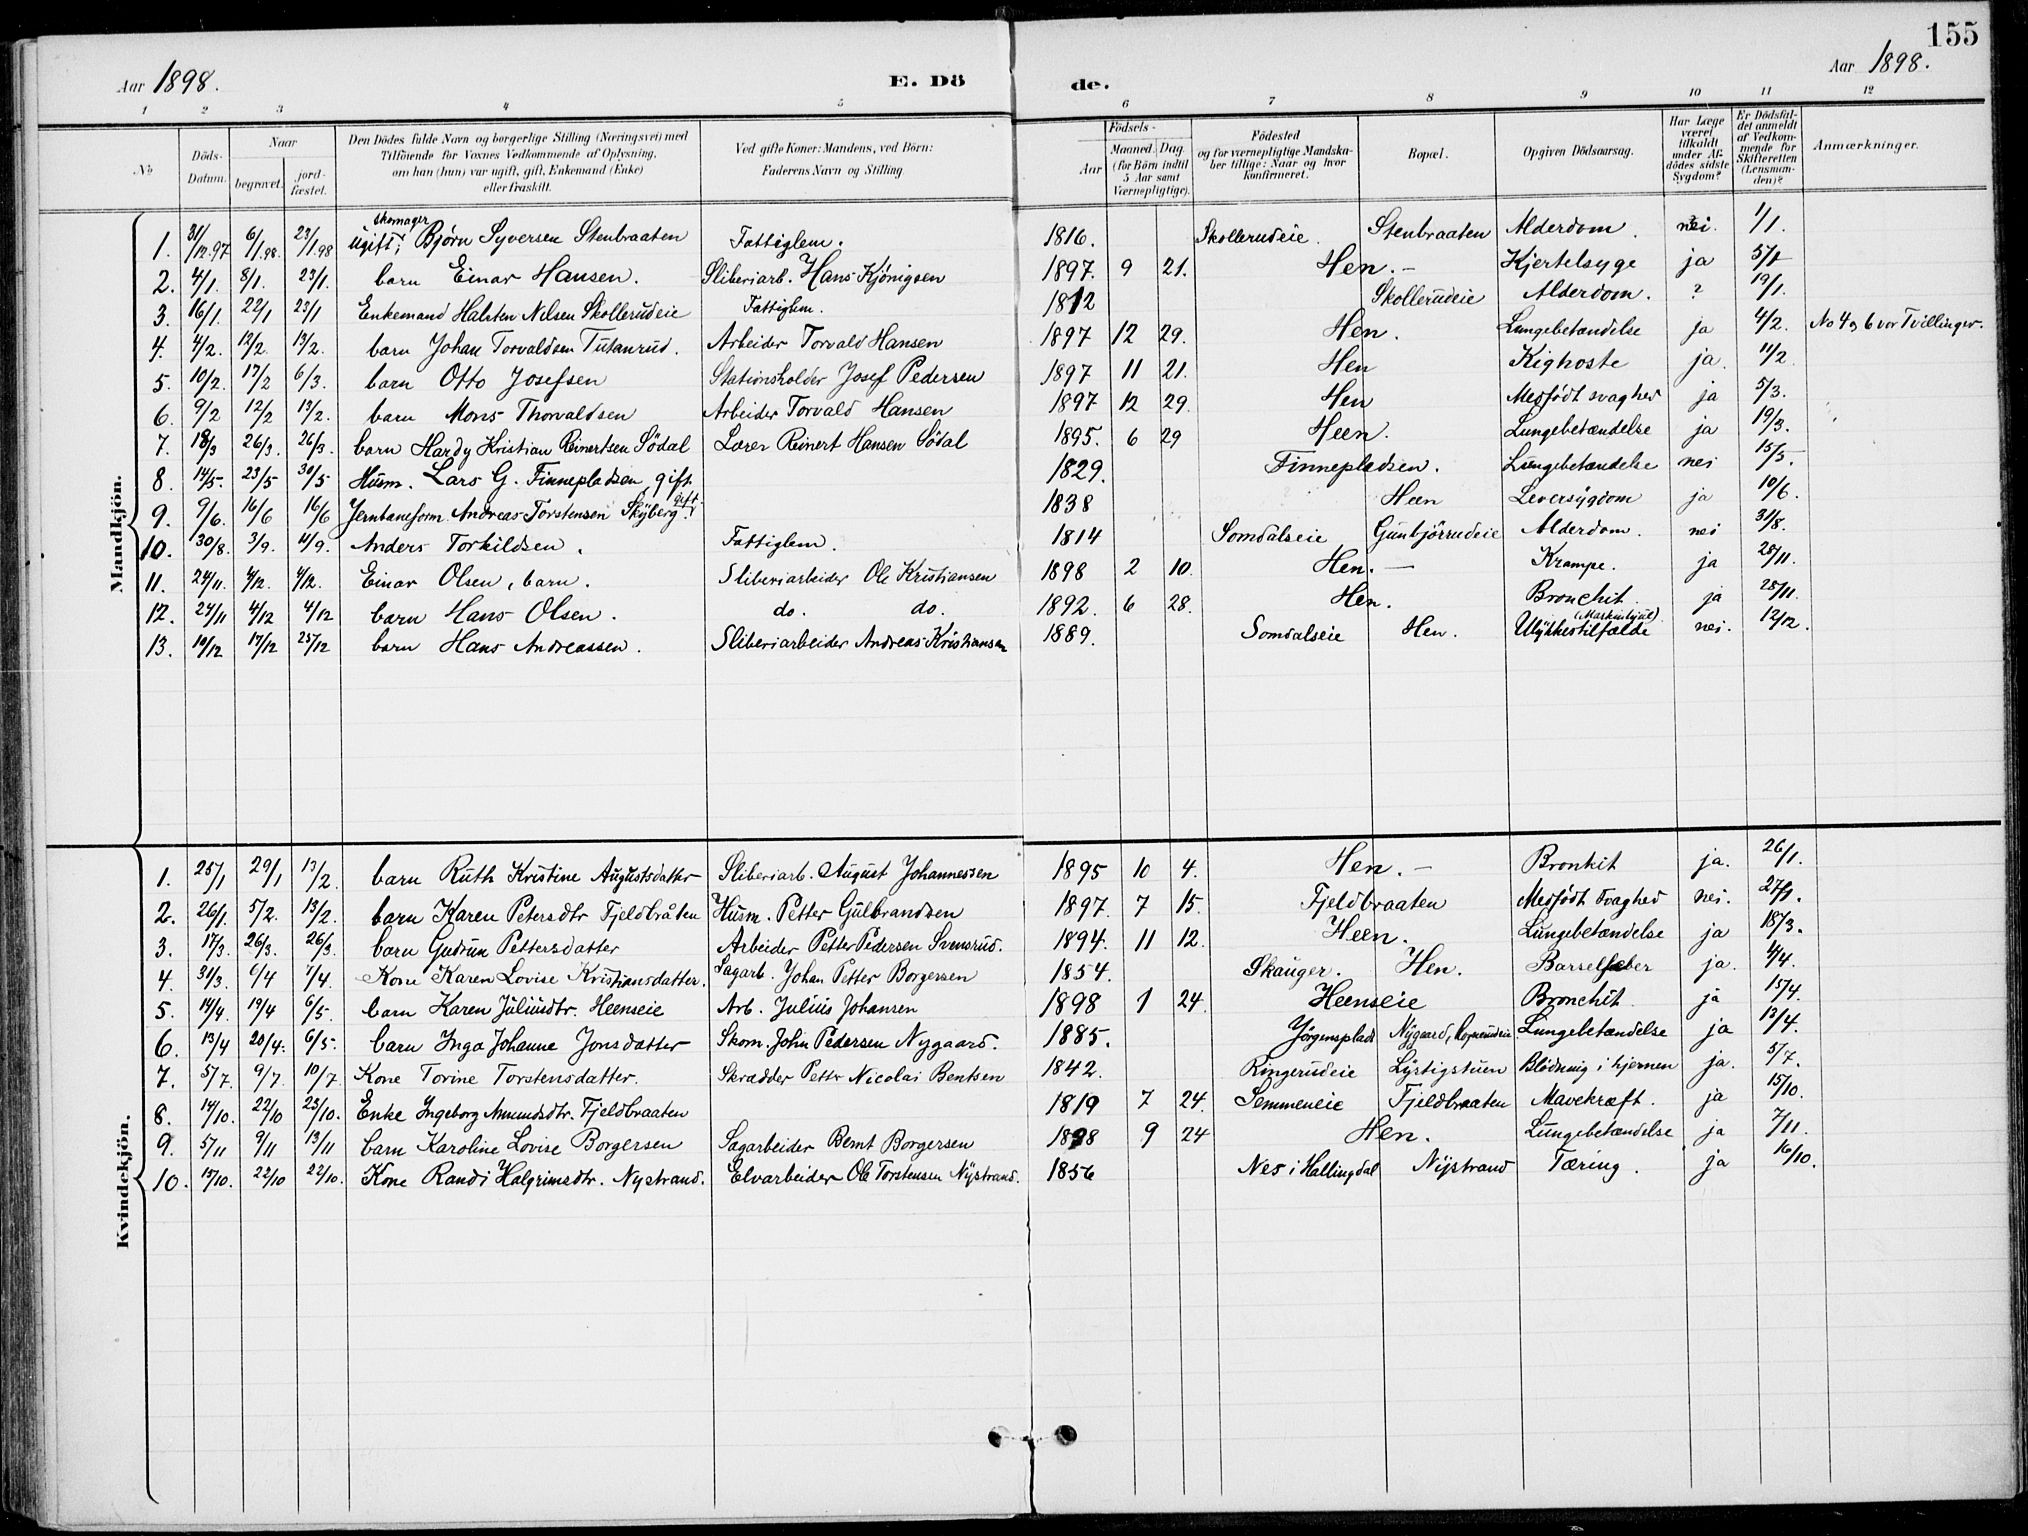 155
Aar 1898. E. Dö de. Aar 1898.
1 2 3 4 5 6 7 8 9 10 11 12
No Döds-Datum. Naar begravet. jordfæstet. Den Dödes fulde Navn og borgerlige Stilling (Næringsvei) med Tilföiende for Voxnes Vedkommende af Oplysning, om han (hun) var ugift, gift, Enkemand (Enke) eller fraskilt. Ved gifte Koner: Mandens, ved Börn: Faderens Navn og Stilling. Födsels- Aar Maaned. Dag. (for Börn indtil 5 Aar samt Værnepligtige). Födested og for værnepligtige Mandskaber tillige: Naar og hvor Konfirmeret. Bopæl. Opgiven Dödsaarsag. Har Læge været tilkaldt under Afdödes sidste Sygdom? Er Dödsfaldet anmeldt af Vedkommende for Skifteretten (Lensmanden)? Anmærkninger.
Mandkjön.
1. 31/12.97 6/1.98. 23/1.98 skomager ugift; Bjørn Syversen Stenbraaten Fattiglem. 1816. Skollerudeie. Stenbraaten Alderdom. nei. 1/1.
2. 4/1. 8/1. 23/1. barn Einar Hansen. Sliberiarb. Hans Kjönigsen 1897. 9 21. Hen. — Kjertelsyge ja 5/1
3. 16/1. 22/1 23/1 Enkemand Halsten Nilsen Skollerudeie Fattiglem. 1812 Skollerudeie Alderdom. ? 19/1.
4. 4/2. 12/2. 13/2. barn Johan Torvaldsen Tutanrud. Arbeider Torvald Hansen 1897 12 29. Hen. Lungebetændelse ja 4/2. No 4 og 6 var Tvillinger.
5. 10/2. 17/2 6/3. barn Otto Josefsen Stationsholder Josef Pedersen 1897 11 21. Hen Kighoste ja. 11/2
6. 9/2 12/2 13/2. barn Mons Thorvaldsen Arbeider Torvald Hansen 1897 12 29. Hen Medfödt svaghed ja 5/3.
7. 18/3 26/3. 26/3. barn Hardy Kristian Reinertsen Södal Lærer Reinert Hansen Södal 1895. 6 29 Heen. Lungebetændelse ja 19/3.
8. 14/5. 23/5 30/5 Husm. Lars G. Finnepladsen, gift. 1829. Finnepladsen. Lungebetændelse nei 15/5.
9. 9/6. 16/6 16/6 Jernbaneform. Andreas Torstensen Skyberg. gift. 1838 Heen Leversygdom ja 10/6.
10. 30/8. 3/9. 4/9. Anders Torkildsen. Fattiglem. 1814 Somdalseie Gunbjörrudeie Alderdom. nei 31/8.
11. 24/11. 4/12. 4/12. Einar Olsen, barn. Sliberiarbeider Ole Kristiansen 1898 2 10. Hen. — Krampe. ja 25/11.
12. 24/11 4/12 4/12 barn Hans Olsen. do. do. 1892. 6 28. Hen. Bronchit. ja 25/11.
13. 10/12 17/12 25/12 barn Hans Andreassen. Sliberiarbeider Andreas Kristiansen 1889. Somdalseie Hen. Ulykkestilfælde (Maskinhjul) nei. 12/12.
Kvindekjön.
1. 25/1 29/1 13/2. barn Ruth Kristine Augustsdatter Sliberiarb. August Johannessen 1895 10 4. Hen. — Bronkit ja. 26/1.
2. 26/1. 5/2. 13/2. barn Karen Petersdtr Fjeldbråten Husm. Petter Gulbrandsen 1897. 7 15. Fjeldbraaten Medfödt Svaghed nei. 27/1.
3. 17/3. 26/3. 26/3. barn Gudrun Pettersdatter Arbeider Petter Pedersen Svensrud. 1894. 11 12. Heen. Lungebetændelse ja 18/3.
4. 31/3. 6/4 7/4. Kone Karen Lovise Kristiansdatter. Sagarb. Johan Petter Borgersen 1854. Skauger. Hen. Barselfeber ja. 4/4.
5. 14/4. 19/4 6/5. barn Karen Juliusdtr. Heenseie Arb. Julius Johansen 1898 1 24. Heenseie Bronchit. ja 15/4.
6. 13/4 20/4. 6/5. barn Inga Johanne Jonsdatter Skom. John Pedersen Nygaard. 1885. Jörgensplads Nygaard, Lungebetændelse ja 13/4.
7. 5/7. 9/7. 10/7. Kone Torine Torstensdatter. Skrædder Petter Nicolai Bentsen 1842. Ringerudeie Lystigstuen Blödning i hjernen ja. 5/7.
8. 14/10. 22/10 23/10. Enke Ingeborg Amundsdtr. Fjeldbraaten 1819 7 24. Semmeneie Fjeldbraaten Mavekræft. ja 15/10.
9. 5/11 9/11 13/11 barn Karoline Lovise Borgersen Sagarbeider Bernt Borgersen 1898 9 24 Hen. Lungebetændelse ja 7/11.
10. 15/10. 22/10 22/10. Kone Randi Halgrimsdtr. Nystrand. Elvarbeider Ole Torstensen Nystrand. 1856 Nes i Hallingdal Nystrand Tæring. ja 16/10.